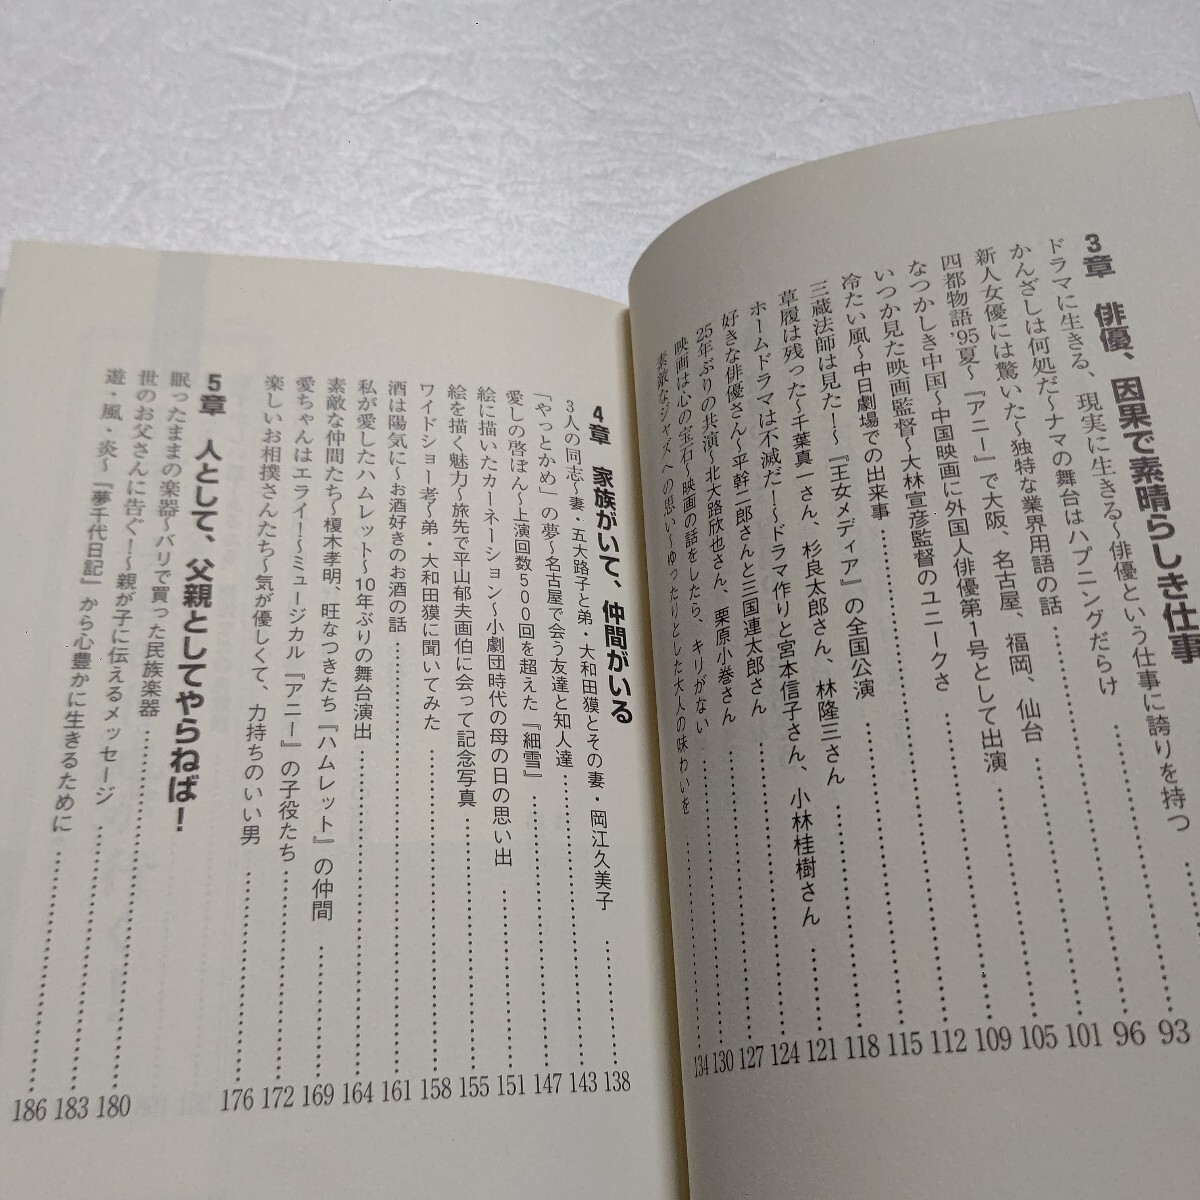 3章 俳優、因果で素晴らしき仕事
ドラマに生きる、現実に生きる〜俳優という仕事に誇りを持つ 93
かんざしは何処だ〜ナマの舞台はハプニングだらけ 96
新人女優には驚いた〜独特な業界用語の話 101
四都物語'95夏〜『アニー』で大阪、名古屋、福岡、仙台 105
なつかしき中国〜中国映画に外国人俳優第1号として出演 109
いつか見た映画監督〜大林宣彦監督のユニークさ 112
冷たい風〜中日劇場での出来事 115
三蔵法師は見た！〜『王女メディア』の全国公演 118
草履は残った〜千葉真一さん、杉良太郎さん、林隆三さん 121
ホームドラマは不滅だ！〜ドラマ作りと宮本信子さん、小林桂樹さん 124
好きな俳優さん〜平幹二郎さんと三国連太郎さん 127
25年ぶりの共演〜北大路欣也さん、栗原小巻さん 130
映画は心の宝石〜映画の話をしたら、キリがない
素敵なジャズへの思い〜ゆったりとした大人の味わいを 134
4章 家族がいて、仲間がいる
3人の同志〜妻・五大路子と弟・大和田獏とその妻・岡江久美子 138
「やっとかめ」の夢〜名古屋で会う友達と知人達 143
愛しの啓ぼん〜上演回数500回を超えた『細雪』 147
絵に描いたカーネーション〜小劇団時代の母の日の思い出 151
絵を描く魅力〜旅先で平山郁夫画伯に会って記念写真 155
ワイドショー考〜弟・大和田獏に聞いてみた 158
酒は陽気に〜お酒好きのお酒の話 161
私が愛したハムレット〜10年ぶりの舞台演出 164
素敵な仲間たち〜榎木孝明、旺なつきたち『ハムレット』の仲間 169
愛ちゃんはエライ！〜ミュージカル『アニー』の子役たち 172
楽しいお相撲さんたち〜気が優しくて、力持ちのいい男 176
5章 人として、父親としてやらねば！
眠ったままの楽器〜バリで買った民族楽器 180
世のお父さんに告ぐ！〜親が子に伝えるメッセージ 183
遊・風・炎〜『夢千代日記』から心豊かに生きるために 186